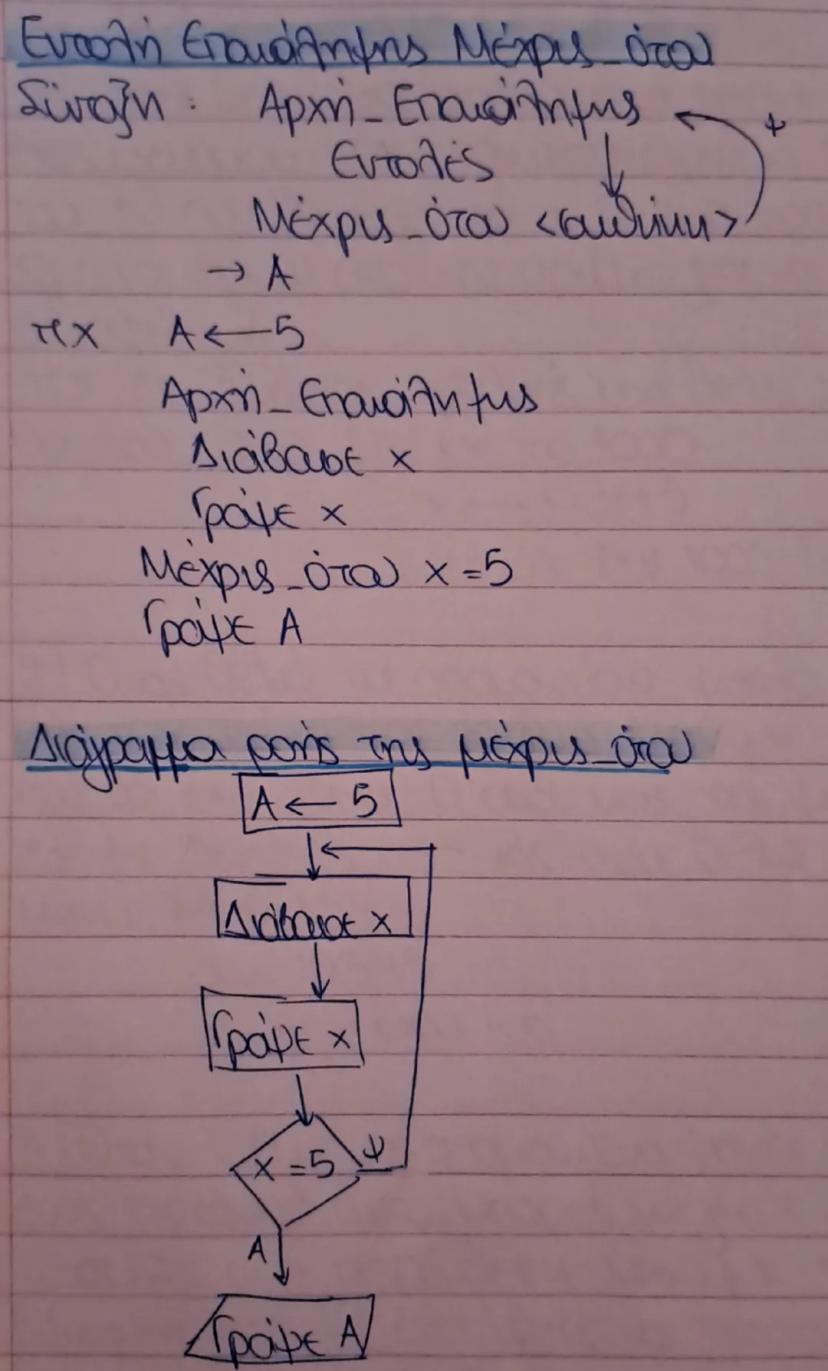 Εντολή Επανάληψης Μέχρις_ότου
Σύνταξη : Αρχή_Επανάληψης
Ψ
Εντολές
Μέχρις_ότου <συνθήκη>
→ Α
πχ Α ← 5
Αρχή_Επανάληψης
Διάβασε x
Γράψε x
Μέχρις_ότου x = 5
Γράψε Α
Διάγραμμα ροής της μέχρις_ότου
Α ← 5
Διάβασε x
Γράψε x
x = 5 Ψ
Α
Γράψε Α